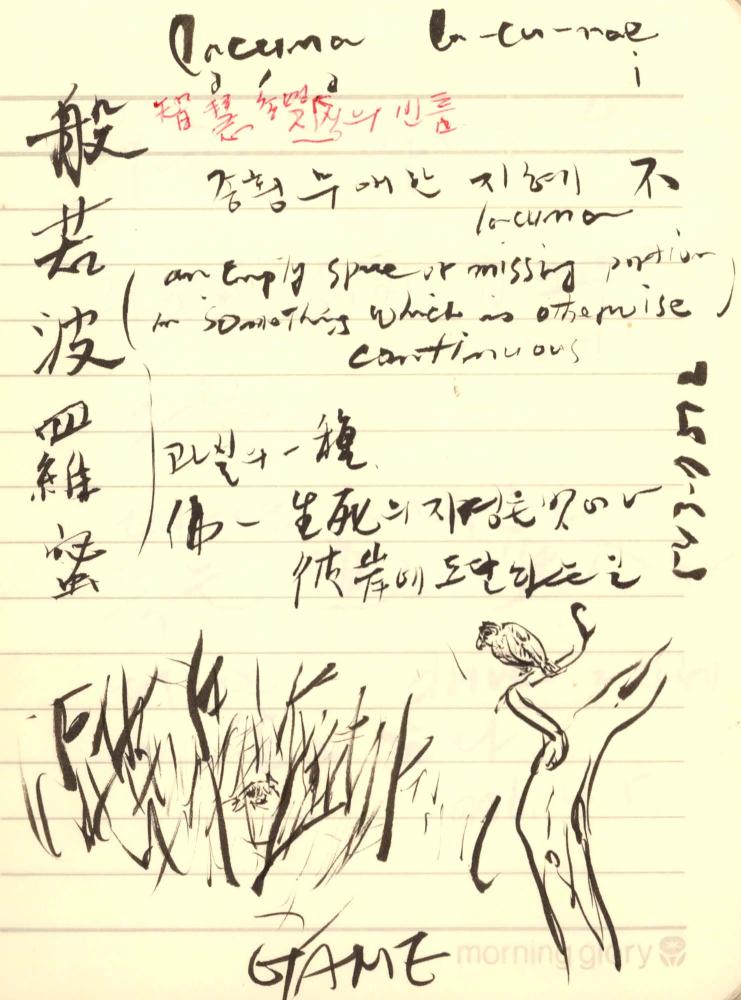 lacuna la-cu-nae
i
般若波羅蜜
智慧 의 빈틈
종횡무애한 지혜 不
lacuna
(an empty space or missing portion
in something which is otherwise
continuous)
과실의 一種
佛 - 生死의 지경을 벗어나
彼岸에 도달하는 일
GAME
morning glory